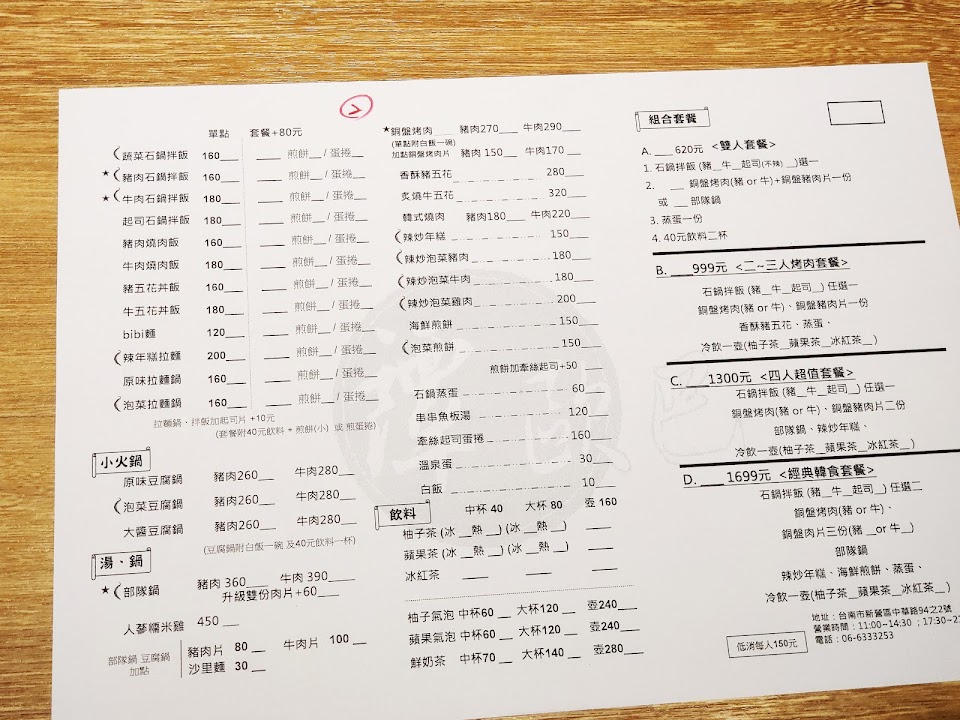 單點 套餐+80元
蔬菜石鍋拌飯 160___ ___ 煎餅__ / 蛋捲__
★ 豬肉石鍋拌飯 160___ ___ 煎餅__ / 蛋捲__
★ 牛肉石鍋拌飯 180___ ___ 煎餅__ / 蛋捲__
起司石鍋拌飯 180___ ___ 煎餅__ / 蛋捲__
豬肉燒肉飯 160___ ___ 煎餅__ / 蛋捲__
牛肉燒肉飯 180___ ___ 煎餅__ / 蛋捲__
豬五花丼飯 160___ ___ 煎餅__ / 蛋捲__
牛五花丼飯 180___ ___ 煎餅__ / 蛋捲__
bibi麵 120___ ___ 煎餅__ / 蛋捲__
辣年糕拉麵 200___ ___ 煎餅__ / 蛋捲__
原味拉麵鍋 160___ ___ 煎餅__ / 蛋捲__
泡菜拉麵鍋 160___ ___ 煎餅__ / 蛋捲__
拉麵鍋、拌飯加起司片 +10元
(套餐附40元飲料 + 煎餅(小) 或 煎蛋捲)
小火鍋
原味豆腐鍋 豬肉260___ 牛肉280___
泡菜豆腐鍋 豬肉260___ 牛肉280___
大醬豆腐鍋 豬肉260___ 牛肉280___
(豆腐鍋附白飯一碗 及40元飲料一杯)
湯、鍋
★ 部隊鍋 豬肉 360___ 牛肉 390___
升級雙份肉片+60___
人蔘糯米雞 450 ___
部隊鍋 豆腐鍋 加點
豬肉片 80 __ 牛肉片 100 __
沙里麵 30 __
★ 銅盤烤肉___ 豬肉270___ 牛肉290___
(單點附白飯一碗)
加點銅盤烤肉片 豬肉 150___ 牛肉170 ___
香酥豬五花 280___
炙燒牛五花 320___
韓式燒肉 豬肉180___ 牛肉220___
辣炒年糕 150___
辣炒泡菜豬肉 180___
辣炒泡菜牛肉 180___
辣炒泡菜雞肉 200___
海鮮煎餅 150___
泡菜煎餅 150___
煎餅加牽絲起司+50 ___
石鍋蒸蛋 60___
串串魚板湯 120___
牽絲起司蛋捲 160___
溫泉蛋 30___
白飯 10___
飲料 中杯 40 大杯 80 壺 160
柚子茶 (冰 __熱 __) (冰__熱 __) ___
蘋果茶 (冰 __熱 __) (冰__熱 __) ___
冰紅茶 ___ ___ ___
柚子氣泡 中杯60 __ 大杯120 __ 壺240___
蘋果氣泡 中杯60 __ 大杯120 __ 壺240___
鮮奶茶 中杯70 __ 大杯140 __ 壺280___
組合套餐
A. ___ 620元 <雙人套餐>
1. 石鍋拌飯 (豬__牛__起司(不辣) __)選一
2. __ 銅盤烤肉(豬 or 牛)+銅盤豬肉片一份
或 __ 部隊鍋
3. 蒸蛋一份
4. 40元飲料二杯
B. ___999元 <二~三人烤肉套餐>
石鍋拌飯 (豬__牛__起司__) 任選一
銅盤烤肉(豬 or 牛)、銅盤豬肉片一份
香酥豬五花、蒸蛋、
冷飲一壺(柚子茶__蘋果茶__冰紅茶__)
C. ___1300元 <四人超值套餐>
石鍋拌飯 (豬__牛__起司__) 任選一
銅盤烤肉(豬 or 牛)、銅盤豬肉片二份
部隊鍋、辣炒年糕、
冷飲一壺(柚子茶__蘋果茶__冰紅茶__)
D. ___ 1699元 <經典韓食套餐>
石鍋拌飯 (豬__牛__起司__) 任選二
銅盤烤肉(豬 or 牛)、
銅盤肉片三份(豬__or 牛__)
部隊鍋
辣炒年糕、海鮮煎餅、蒸蛋、
冷飲一壺(柚子茶__蘋果茶__冰紅茶__)
低消每人150元
地址：台南市新營區中華路94之2號
營業時間：11:00~14:30 ；17:30~
電話：06-6333253